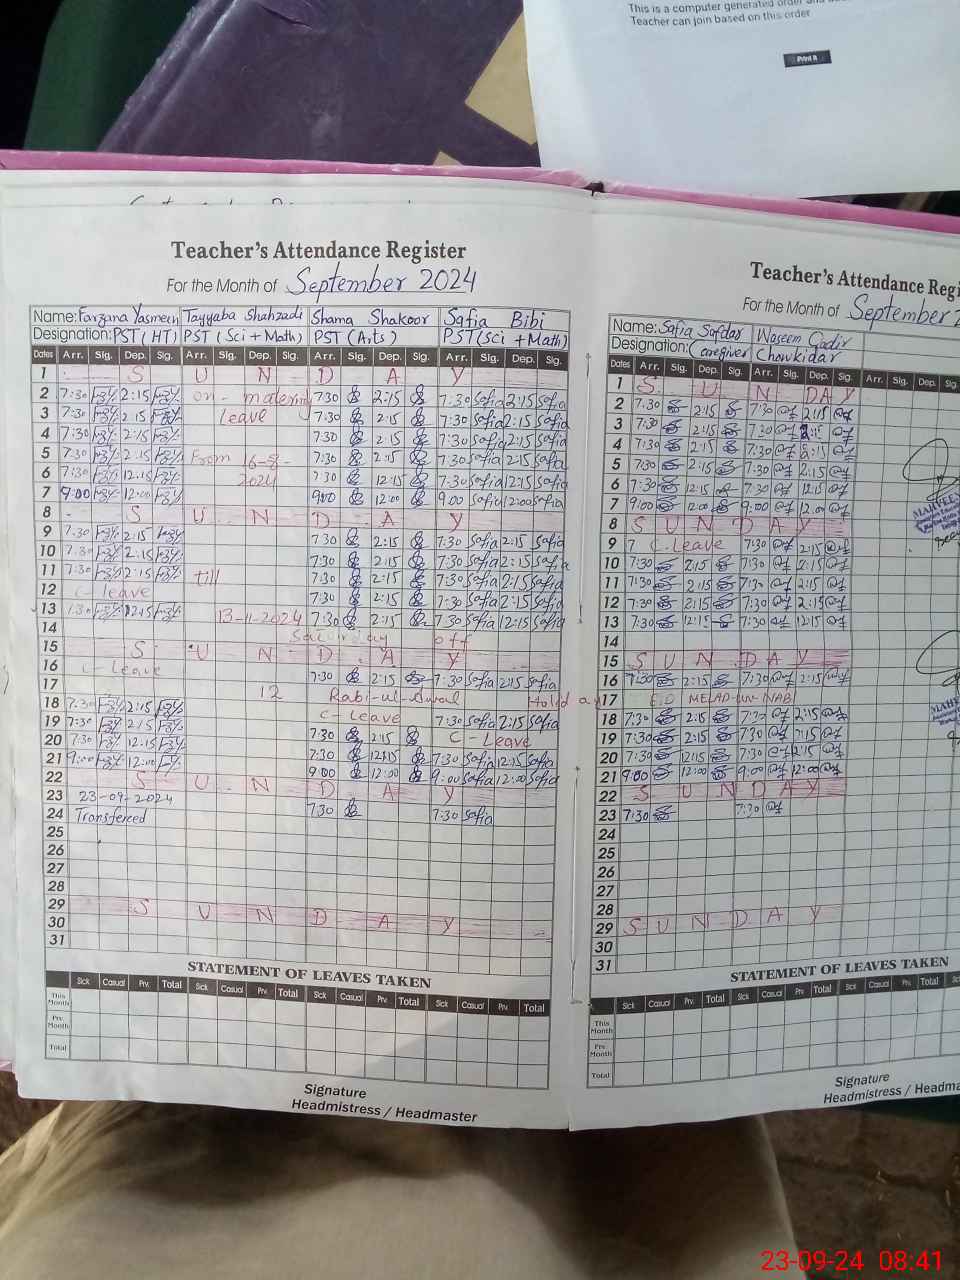 This is a computer generated order and
Teacher can join based on this order
Print it
Teacher's Attendance Register
For the Month of September 2024
Name: Farzana Yasmeen Tayyaba Shahzadi Shama Shakoor Safia Bibi
Designation: PST (HT) PST (Sci + Math) PST (Arts) PST (Sci + Math)
Dates Arr. Sig. Dep. Sig. Arr. Sig. Dep. Sig. Arr. Sig. Dep. Sig. Arr. Sig. Dep. Sig.
1 S U N D A Y
2 7:30 2:15 on - 7:30 2:15 7:30 Safia 2:15 Safia
3 7:30 2:15 leave 7:30 2:15 7:30 Safia 2:15 Safia
4 7:30 2:15 7:30 2:15 7:30 Safia 2:15 Safia
5 7:30 2:15 From 16-8- 7:30 2:15 7:30 Safia 2:15 Safia
6 7:30 12:15 2024 7:30 12:15 7:30 Safia 12:15 Safia
7 9:00 12:00 9:00 12:00 9:00 Safia 12:00 Safia
8 S U N D A Y
9 7:30 2:15 7:30 2:15 7:30 Safia 2:15 Safia
10 7:30 2:15 7:30 2:15 7:30 Safia 2:15 Safia
11 7:30 2:15 till 7:30 2:15 7:30 Safia 2:15 Safia
12 C - leave 7:30 2:15 7:30 Safia 2:15 Safia
13 7:30 12:15 13-11-2024 7:30 2:15 7:30 Safia 12:15 Safia
14 Saturday off
15 S U N D A Y
16 C - Leave 7:30 2:15 7:30 Safia 2:15 Safia
17 12 Rabi-ul-Awal Holiday
18 7:30 2:15 C - Leave 7:30 Safia 2:15 Safia
19 7:30 2:15 7:30 2:15 C - Leave
20 7:30 12:15 7:30 12:15 7:30 Safia 12:15 Safia
21 9:00 12:00 9:00 12:00 9:00 Safia 12:00 Safia
22 S U N D A Y
23 23-09-2024 7:30 7:30 Safia
24 Transfered
25
26
27
28
29 S U N D A Y
30
31
STATEMENT OF LEAVES TAKEN
Sick Casual Prv. Total Sick Casual Prv. Total Sick Casual Prv. Total Sick Casual Prv. Total
This Month
Prv. Month
Total
Signature
Headmistress / Headmaster
Teacher's Attendance Regi
For the Month of September 2
Name: Safia Safdar Waseem Qadir
Designation: Caregiver Chowkidar
Dates Arr. Sig. Dep. Sig. Arr. Sig. Dep. Sig. Arr. Sig. Dep. Sig.
1 S U N D A Y
2 7:30 2:15 7:30 2:15
3 7:30 2:15 7:30 2:15
4 7:30 2:15 7:30 2:15
5 7:30 2:15 7:30 2:15
6 7:30 12:15 7:30 12:15
7 9:00 12:00 9:00 12:00
8 S U N D A Y
9 C. Leave 7:30 2:15
10 7:30 2:15 7:30 2:15
11 7:30 2:15 7:30 2:15
12 7:30 2:15 7:30 2:15
13 7:30 12:15 7:30 12:15
14
15 S U N D A Y
16 7:30 2:15 7:30 2:15
17 E.D MELAD-UN-NABI
18 7:30 2:15 7:30 2:15
19 7:30 2:15 7:30 2:15
20 7:30 12:15 7:30 2:15
21 9:00 12:00 9:00 12:00
22 S U N D A Y
23 7:30 7:30
24
25
26
27
28
29 S U N D A Y
30
31
STATEMENT OF LEAVES TAKEN
Sick Casual Prv. Total Sick Casual Prv. Total Sick Casual Prv.
This Month
Prv. Month
Total
Signature
Headmistress / Headma
23-09-24 08:41